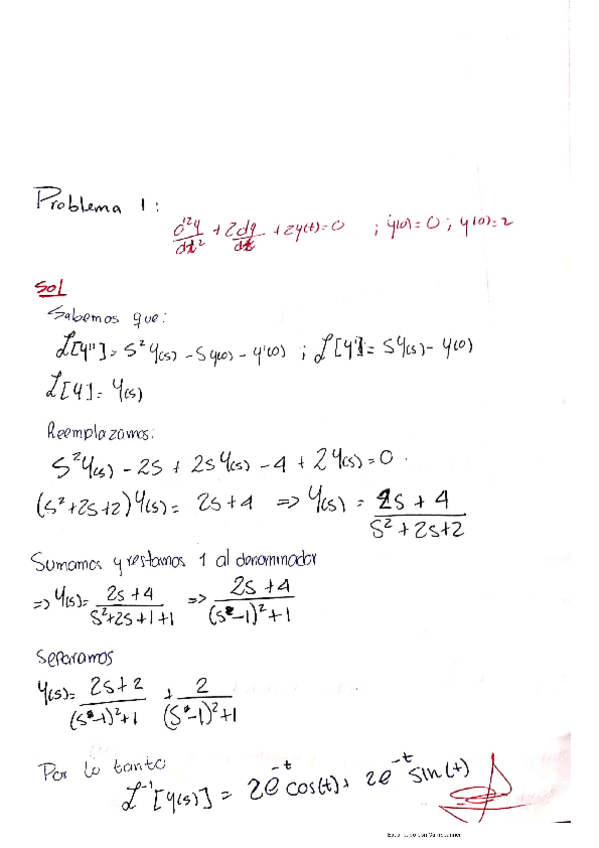 Problema 1:
d²y/dt² + 2dy/dt + 2y(t)=0 ; ẏ(0)=0 ; y(0)=2
Sol
Sabemos que:
ℒ[y'']= S²Y(s) - Sy(0) - y'(0) ; ℒ[y']= SY(s) - y(0)
ℒ[y]= Y(s)
Reemplazamos:
S²Y(s) - 2S + 2SY(s) - 4 + 2Y(s)=0.
(S²+2S+2)Y(s)= 2S+4 => Y(s) = 2S + 4 / S² + 2S+2
Sumamos y restamos 1 al denominador
=> Y(s)= 2S+4 / S²+2S+1+1 => 2S+4 / (S-1)²+1
Separamos
Y(s)= 2S+2 / (S-1)²+1 + 2 / (S-1)²+1
Por lo tanto
ℒ⁻¹[Y(s)] = 2e⁻ᵗcos(t) + 2e⁻ᵗ sin(t)